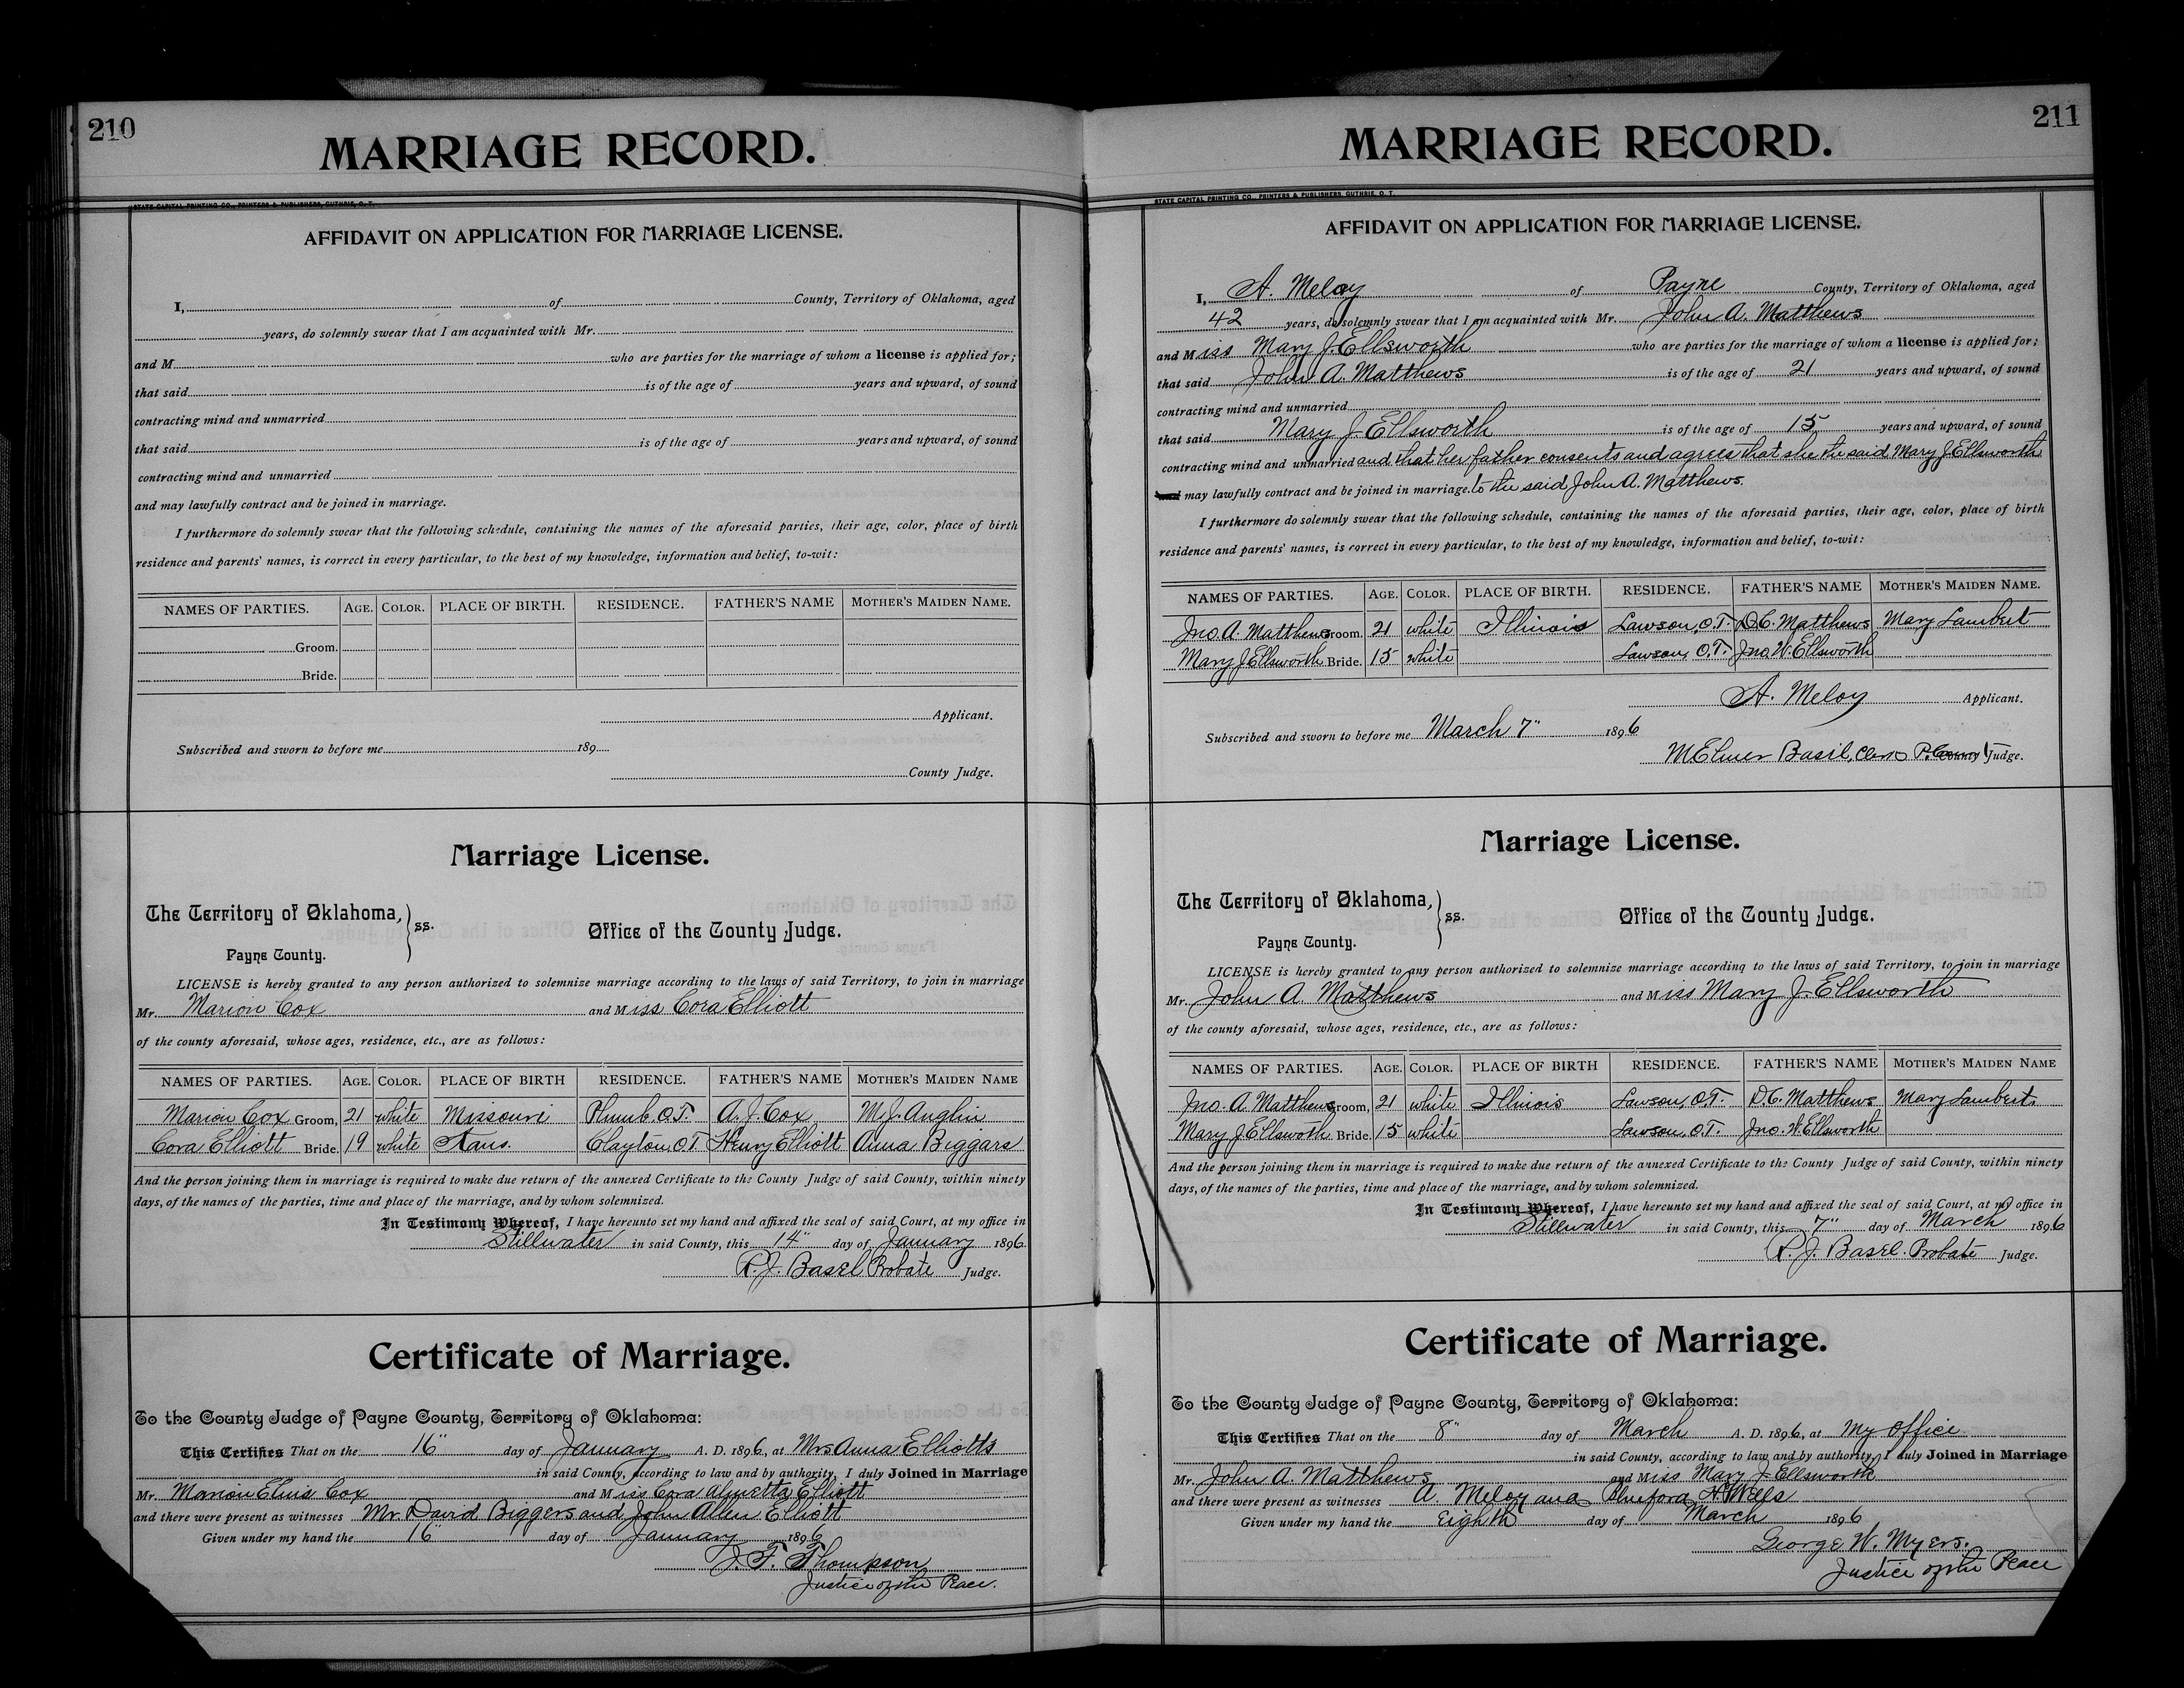 210
MARRIAGE RECORD.
STATE CAPITAL PRINTING CO., PRINTERS & PUBLISHERS, GUTHRIE, O. T.
AFFIDAVIT ON APPLICATION FOR MARRIAGE LICENSE.
I, of County, Territory of Oklahoma, aged
years, do solemnly swear that I am acquainted with Mr.
and M who are parties for the marriage of whom a license is applied for;
that said is of the age of years and upward, of sound
contracting mind and unmarried
that said is of the age of years and upward, of sound
contracting mind and unmarried
and may lawfully contract and be joined in marriage.
I furthermore do solemnly swear that the following schedule, containing the names of the aforesaid parties, their age, color, place of birth
residence and parents' names, is correct in every particular, to the best of my knowledge, information and belief, to-wit:
NAMES OF PARTIES. AGE. COLOR. PLACE OF BIRTH. RESIDENCE. FATHER'S NAME MOTHER'S MAIDEN NAME.
Groom.
Bride.
Applicant.
Subscribed and sworn to before me 189
County Judge.
Marriage License.
The Territory of Oklahoma, } ss. Office of the County Judge.
Payne County.
LICENSE is hereby granted to any person authorized to solemnize marriage according to the laws of said Territory, to join in marriage
Mr. Marion Cox and Miss Cora Elliott
of the county aforesaid, whose ages, residence, etc., are as follows:
NAMES OF PARTIES. AGE. COLOR. PLACE OF BIRTH RESIDENCE. FATHER'S NAME MOTHER'S MAIDEN NAME
Marion Cox Groom, 21 white Missouri Plumb. O.T. A. J. Cox M. J. Anglin
Cora Elliott Bride 19 white Kans. Clayton, O.T. Henry Elliott Anna Biggars
And the person joining them in marriage is required to make due return of the annexed Certificate to the County Judge of said County, within ninety
days, of the names of the parties, time and place of the marriage, and by whom solemnized.
In Testimony Whereof, I have hereunto set my hand and affixed the seal of said Court, at my office in
Stillwater in said County, this 14" day of January 1896.
R. J. Basel Probate Judge.
Certificate of Marriage.
To the County Judge of Payne County, Territory of Oklahoma:
This Certifies That on the 16" day of January A. D. 1896, at Mrs Anna Elliotts
in said County, according to law and by authority, I duly Joined in Marriage
Mr. Marion Elvis Cox and Miss Cora Almetta Elliott
and there were present as witnesses Mr. David Biggers and John Allen Elliott
Given under my hand the 16" day of January 1896
J. F. Thompson
Justice of the Peace.
211
MARRIAGE RECORD.
STATE CAPITAL PRINTING CO., PRINTERS & PUBLISHERS, GUTHRIE, O. T.
AFFIDAVIT ON APPLICATION FOR MARRIAGE LICENSE.
I, A. Meloy of Payne County, Territory of Oklahoma, aged
42 years, do solemnly swear that I am acquainted with Mr. John A. Matthews
and Miss Mary J. Ellsworth who are parties for the marriage of whom a license is applied for;
that said John A. Matthews is of the age of 21 years and upward, of sound
contracting mind and unmarried
that said Mary J. Ellsworth is of the age of 15 years and upward, of sound
contracting mind and unmarried and that her father consents and agrees that she the said Mary J Ellsworth
may lawfully contract and be joined in marriage. to the said John A. Matthews.
I furthermore do solemnly swear that the following schedule, containing the names of the aforesaid parties, their age, color, place of birth
residence and parents' names, is correct in every particular, to the best of my knowledge, information and belief, to-wit:
NAMES OF PARTIES. AGE. COLOR. PLACE OF BIRTH. RESIDENCE. FATHER'S NAME MOTHER'S MAIDEN NAME.
Jno. A. Matthews Groom. 21 white Illinois Lawson, O.T. D.C. Matthews Mary Lambert
Mary J Ellsworth Bride. 15 white Lawson, O.T. Jno. W. Ellsworth
A. Meloy Applicant.
Subscribed and sworn to before me March 7" 1896
M. Elmer Basil, Clerk P. County Judge.
Marriage License.
The Territory of Oklahoma, } ss. Office of the County Judge.
Payne County.
LICENSE is hereby granted to any person authorized to solemnize marriage according to the laws of said Territory, to join in marriage
Mr. John A. Matthews and Miss Mary J. Ellsworth
of the county aforesaid, whose ages, residence, etc., are as follows:
NAMES OF PARTIES. AGE. COLOR. PLACE OF BIRTH RESIDENCE. FATHER'S NAME MOTHER'S MAIDEN NAME
Jno. A. Matthews Groom, 21 white Illinois Lawson, O.T. D.C. Matthews Mary Lambert.
Mary J Ellsworth Bride. 15 white Lawson, O.T. Jno. W. Ellsworth
And the person joining them in marriage is required to make due return of the annexed Certificate to the County Judge of said County, within ninety
days, of the names of the parties, time and place of the marriage, and by whom solemnized.
In Testimony Whereof, I have hereunto set my hand and affixed the seal of said Court, at my office in
Stillwater in said County, this 7" day of March 1896
R. J. Basel. Probate Judge.
Certificate of Marriage.
To the County Judge of Payne County, Territory of Oklahoma:
This Certifies That on the 8" day of March A. D. 1896, at My Office
in said County, according to law and by authority, I duly Joined in Marriage
Mr. John A. Matthews and Miss Mary J. Ellsworth
and there were present as witnesses A. Meloy and Blueford H Wells
Given under my hand the Eighth day of March 1896
George W. Myers.
Justice of the Peace